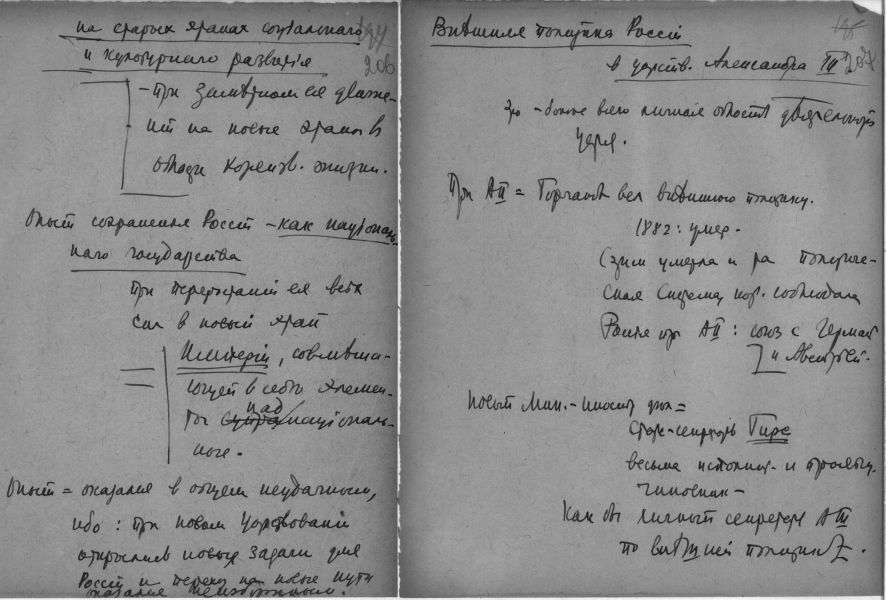 на старых гранях социального
и культурного развития
206
– При замедлении ея движе-
ния на новые грани в
области коренн. жизни.
Опыт сохранения России – как националь-
наго государства
при перерастании ея всех
сил в новый этап
Империи, совмеща-
ющей в себе элемен-
ты национально-
ного.
Опыт = оказался в общем неудачным,
ибо: при новом Царствовании
открылись новые задачи для
России и переход на новые пути
оказался неизбежным.
Внешняя политика России
в царств. Александра III
207
Это – более всего личная область деятельности
Царя.
При АII = Горчаков вел внешнюю политику.
1882: умер.
С ним умерла и та политиче-
ская система, кот. соблюдала
Россия при АII: союз с Герман.
и Австрией.
Новый Мин. – иностр. дел =
Статс-секретарь Гирс
весьма исполнит. и
чиновник –
Как бы личный секретарь АIII
по внешней политике.